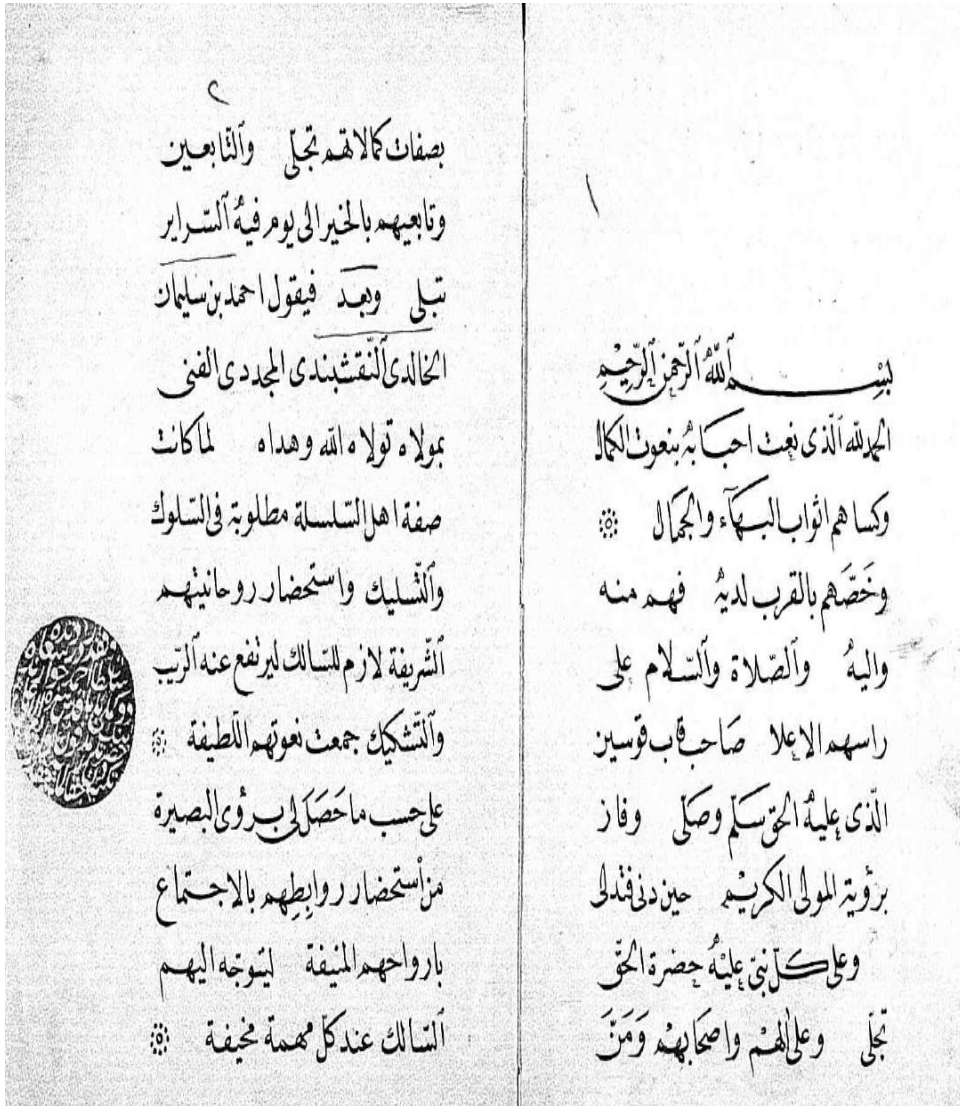 ١
بسم الله الرحمن الرحيم
الحمد لله الذى نعت احبابه بنعوت الكمال
وكساهم اثواب البهآء والجمال
وخَصَّهم بالقرب لديه فهم منه
واليه والصّلاة والسّلام على
راسهم الاعلا صاحب قاب قوسين
الّذى عليه الحق سلّم وصلى وفاز
برؤية المولى الكريم حين دنى فتدلى
وعلى كلّ نبىّ عليه حضرة الحقّ
تجلّى وعلى الهم واصحابهم وَمَنْ
٢
بصفات كمالاتهم تجلى والتّابعين
وتابعيهم بالخير الى يوم فيه السّراير
تبلى وبعد فيقول احمد بن سليمان
الخالدى النّقشبندى المجددى الفنى
بمولاه تولاه الله وهداه لما كانت
صفة اهل السّلسلة مطلوبة فى السّلوك
والتّسليك واستحضار روحانيتهم
الشّريفة لازم للسّالك ليرتفع عنه الرّيب
والتّشكيك جمعت نعوتهم اللّطيفة
على حسب ما حَصَل لى برؤى البصيرة
من استحضار روابطِهم بالاجتماع
بارواحهم المنيفة ليتوجه اليهم
السّالك عند كل مهمة مخيفة